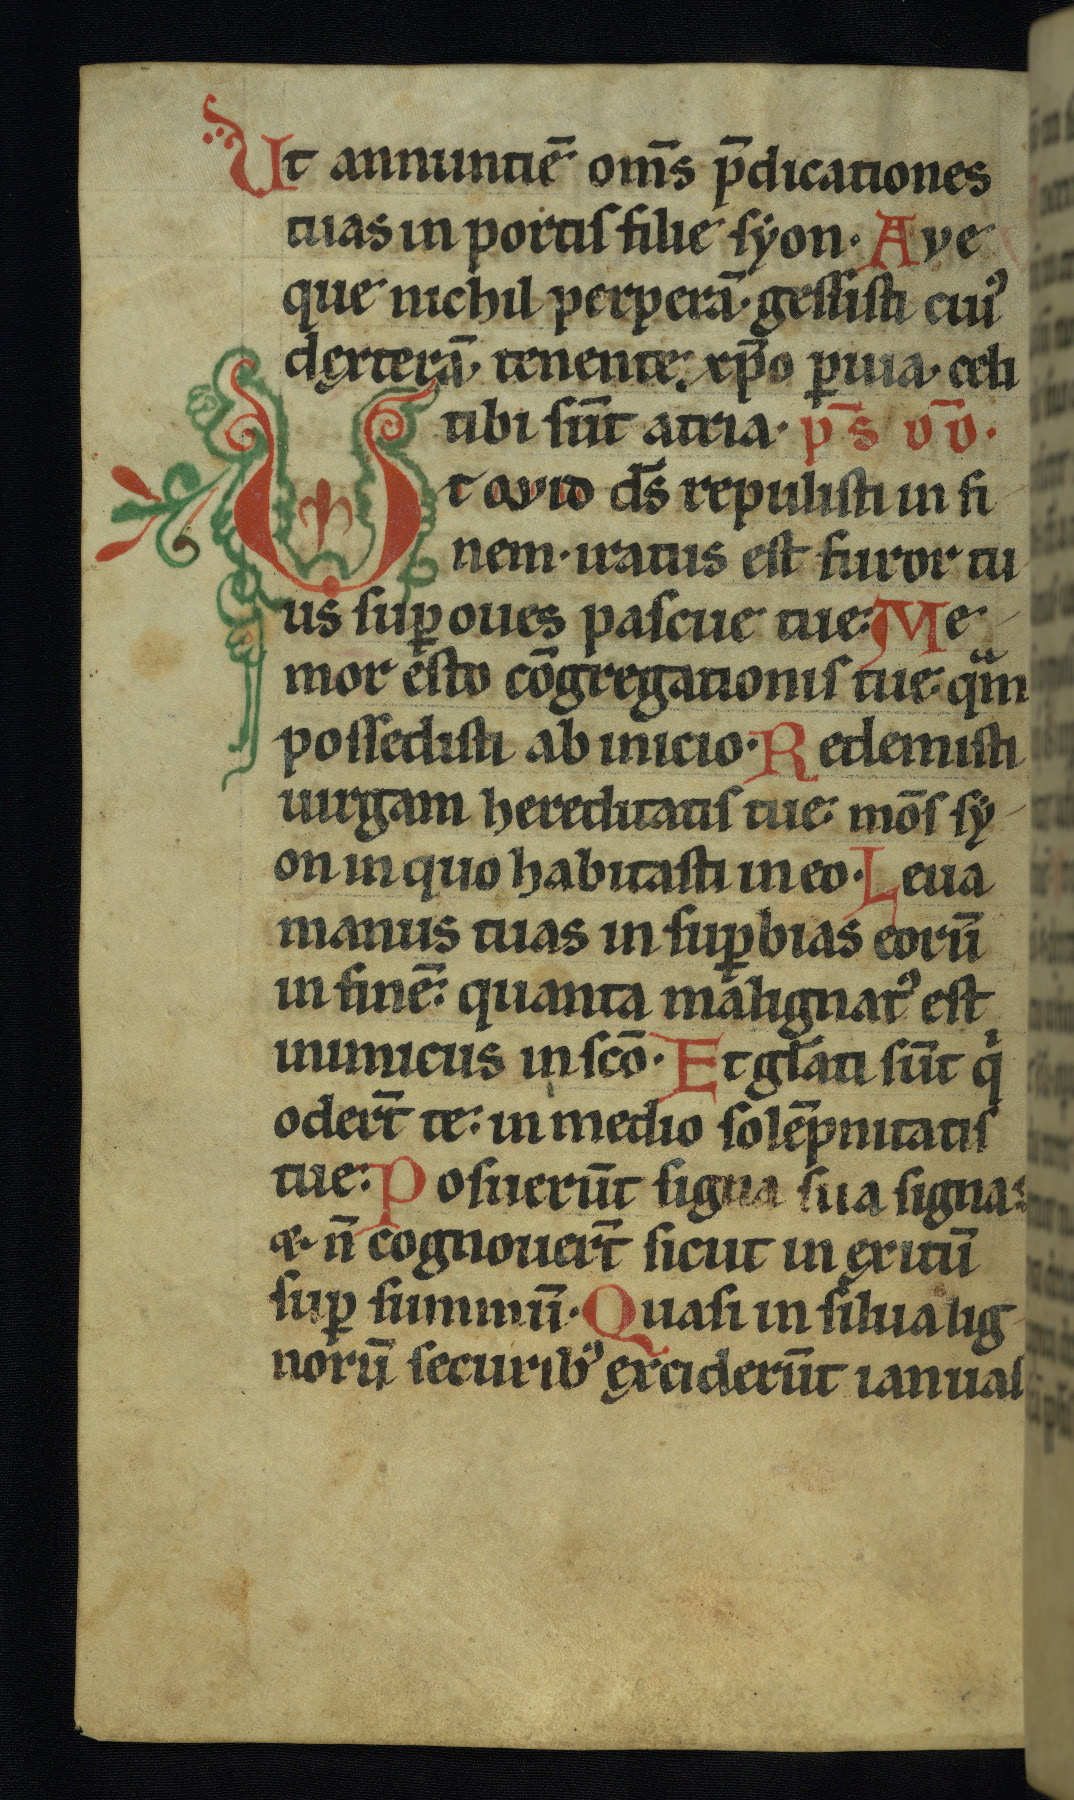 Ut annuntiē om̄s p̄dicationes
tuas in portis filie syon. Ave
que nichil perperā. gessisti cuiꝰ
dexterā. tenente. xp̄o ꝑuia. celi
tibi sūt atria. p̄s vv̄.
Ut quid d̄s repulisti in fi
nem. iratus est furor tu
us suꝑ oues pascue tue: Me
mor esto cōgregationis tue. qm̄
possedisti ab inicio. Redemisti
uirgam hereditatis tue. mōs sy
on in quo habitasti in eo. Leua
manus tuas in suꝑbias eorū
in finē: quanta malignatꝰ est
inimicus in scō. Et gl̄ati sūt q̇
odert̄ te: in medio solēpnitatis
tue: Posuerūt signa sua signa:
&. n̄ cognouert̄ sicut in exitū
suꝑ summū. Quasi in silua lig
norū securibꝰ exciderūt ianuas